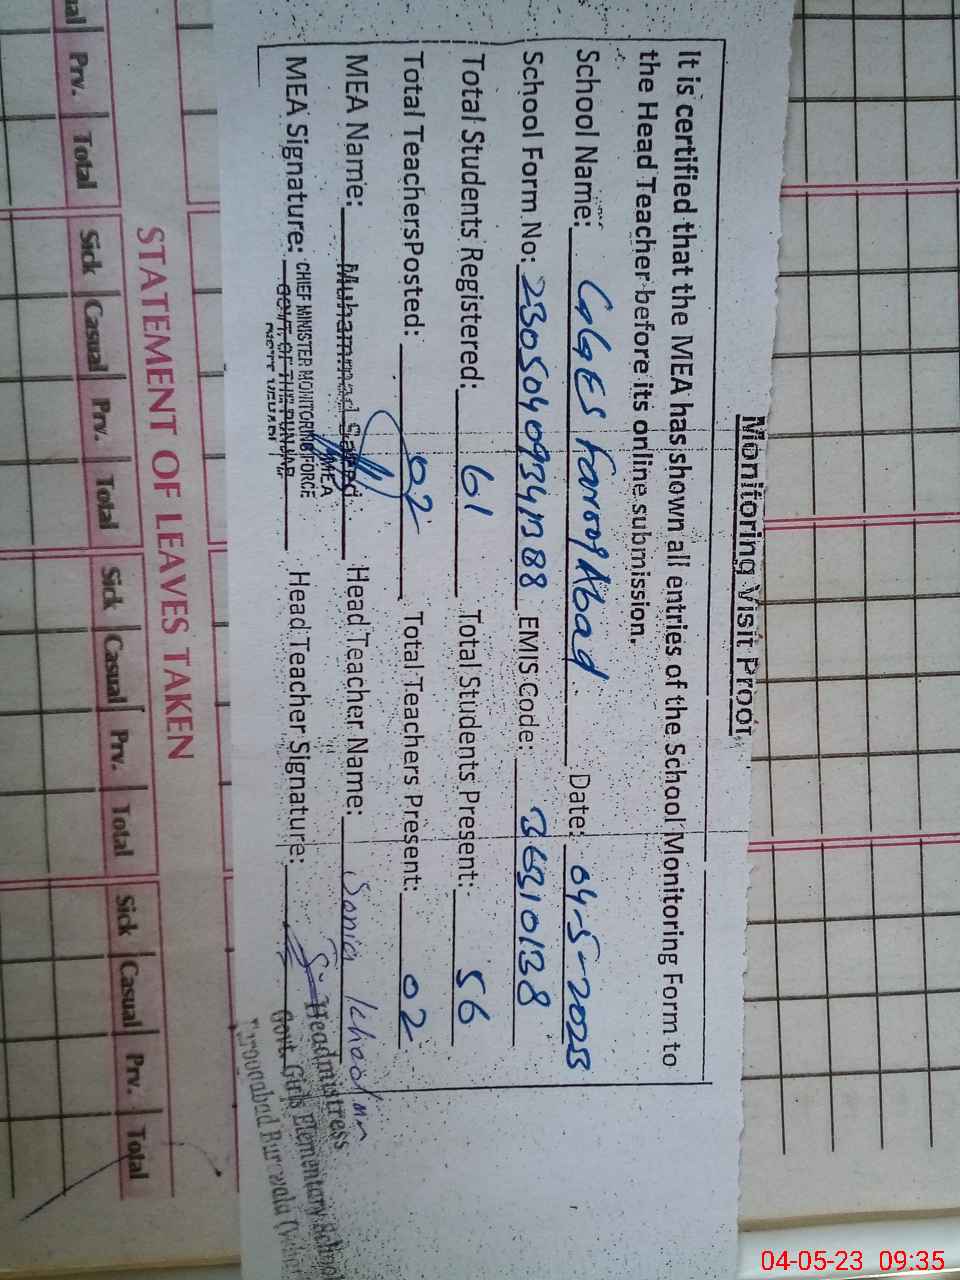 Monitoring Visit Proof
It is certified that the MEA has shown all entries of the School Monitoring Form to
the Head Teacher before its online submission.
School Name: GGES Farooq Abad Date: 04-5-2023
School Form No: EMIS Code: 36310138
Total Students Registered: 61 Total Students Present: 56
Total TeachersPosted: 02 Total Teachers Present: 02
MEA Name: Muhammad Saeed Head Teacher Name: Sonia
MEA
MEA Signature: CHIEF MINISTER MONITORING FORCE Head Teacher Signature:
GOVT. OF THE PUNJAB
DISTT VEHARI
Headmistress
Govt. Girls Elementary School
Farooqabad Burewala
STATEMENT OF LEAVES TAKEN
Prv. Total Sick Casual Prv. Total Sick Casual Prv. Total Sick Casual Prv. Total
04-05-23 09:35